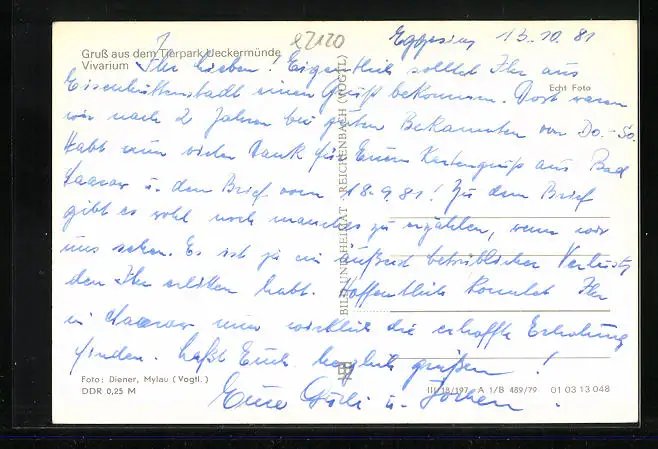 e2120
Eggesin, 13.10.81
Gruß aus dem Tierpark Ueckermünde
Vivarium
Ihr Lieben! Eigentlich solltet Ihr aus
Echt Foto
Eisenhüttenstadt einen Gruß bekommen. Dort waren
wir nach 2 Jahren bei guten Bekannten von Do.-So.
Habt nun vielen Dank für Euren Kartengruß aus Bad
Saarow u. den Brief vom 18.9.81! Zu dem Brief
gibt es wohl noch manches zu erzählen, wenn wir
uns sehen. Es ist ja ein äußerst betrüblicher Verlust,
den Ihr erlitten habt. Hoffentlich konntet Ihr
in Saarow nun wirklich die erhoffte Erholung
finden. Laßt Euch herzlich grüßen!
Eure u. Jochen.
BILD UND HEIMAT REICHENBACH (VOGTL)
Foto: Diener, Mylau (Vogtl.)
DDR 0,25 M
III/18/197 A 1/B 489/79 01 03 13 048